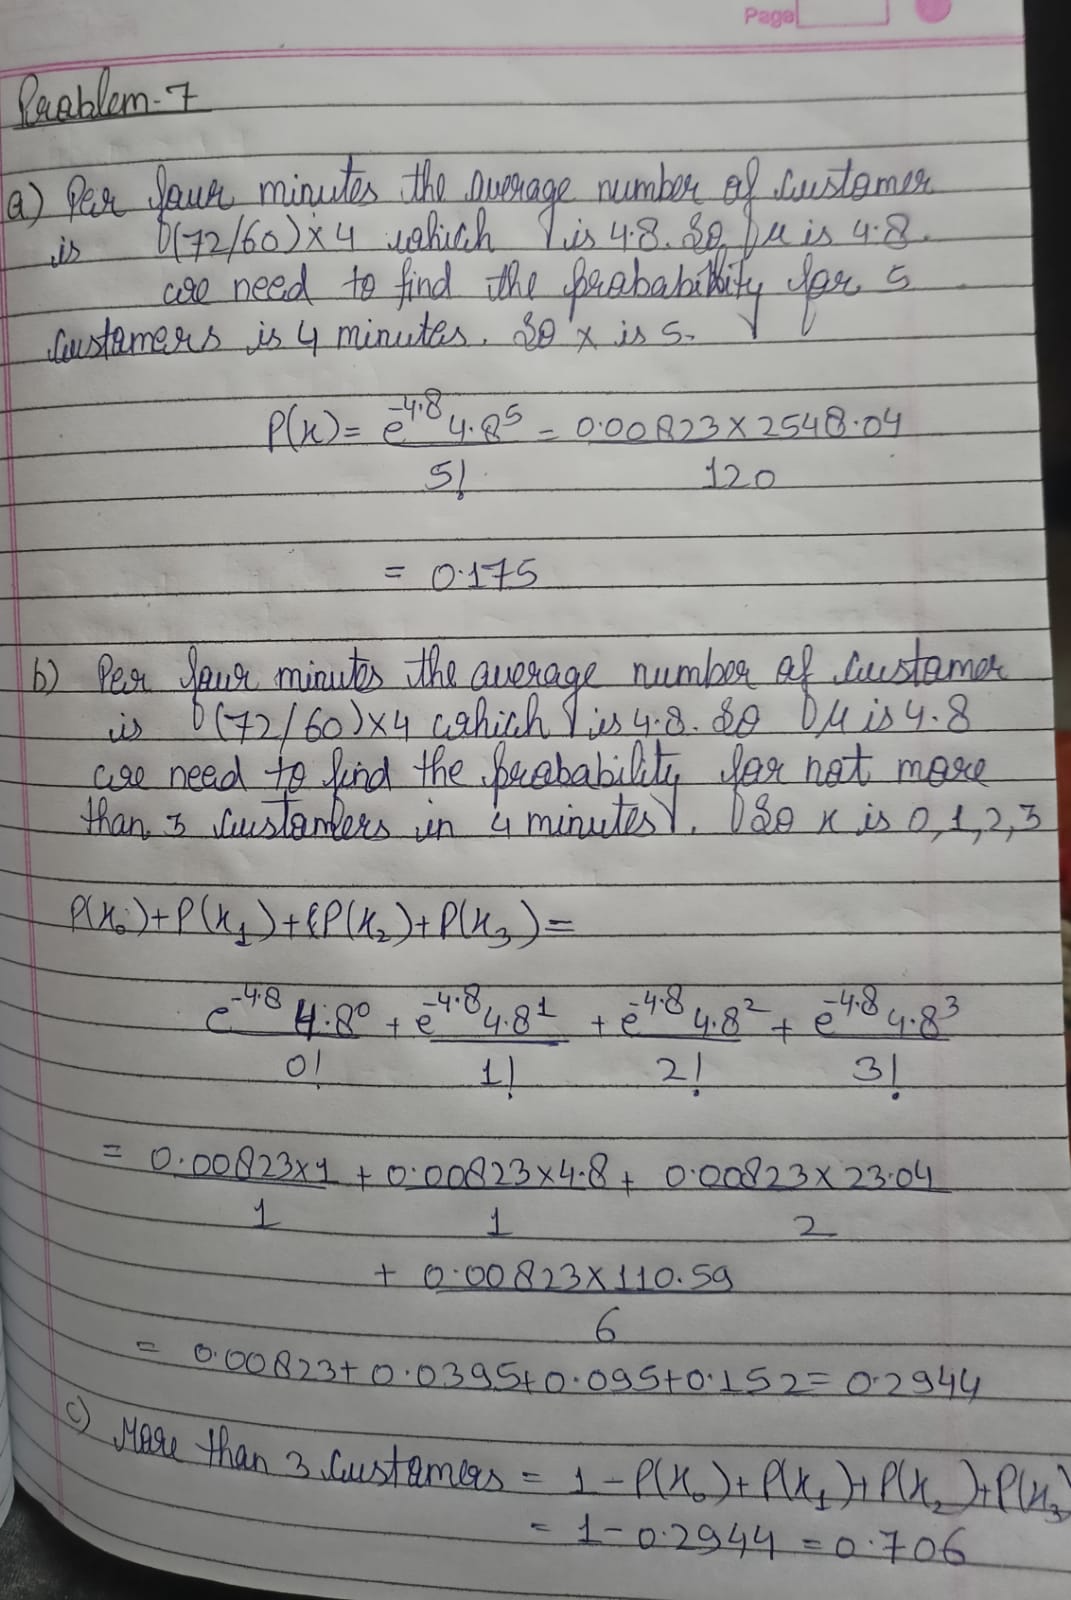 Page
Problem-7
a) Per four minutes the average number of customer
is (72/60)×4 which is 4.8. So, μ is 4.8.
we need to find the probability for 5
customers is 4 minutes. So x is 5.
P(x) = e^-4.8 4.8^5 / 5! = 0.00823×2548.04 / 120
= 0.175
b) Per four minutes the average number of customer
is (72/60)×4 which is 4.8. So μ is 4.8
we need to find the probability for not more
than 3 customers in 4 minutes. So x is 0,1,2,3
P(x₀)+P(x₁)+P(x₂)+P(x₃)=
e^-4.8 4.8^0 / 0! + e^-4.8 4.8^1 / 1! + e^-4.8 4.8^2 / 2! + e^-4.8 4.8^3 / 3!
= 0.00823×1 / 1 + 0.00823×4.8 / 1 + 0.00823×23.04 / 2
+ 0.00823×110.59 / 6
= 0.00823+0.0395+0.095+0.152=0.2944
c) More than 3 customers = 1-P(x₀)+P(x₁)+P(x₂)+P(x₃)
= 1-0.2944=0.706